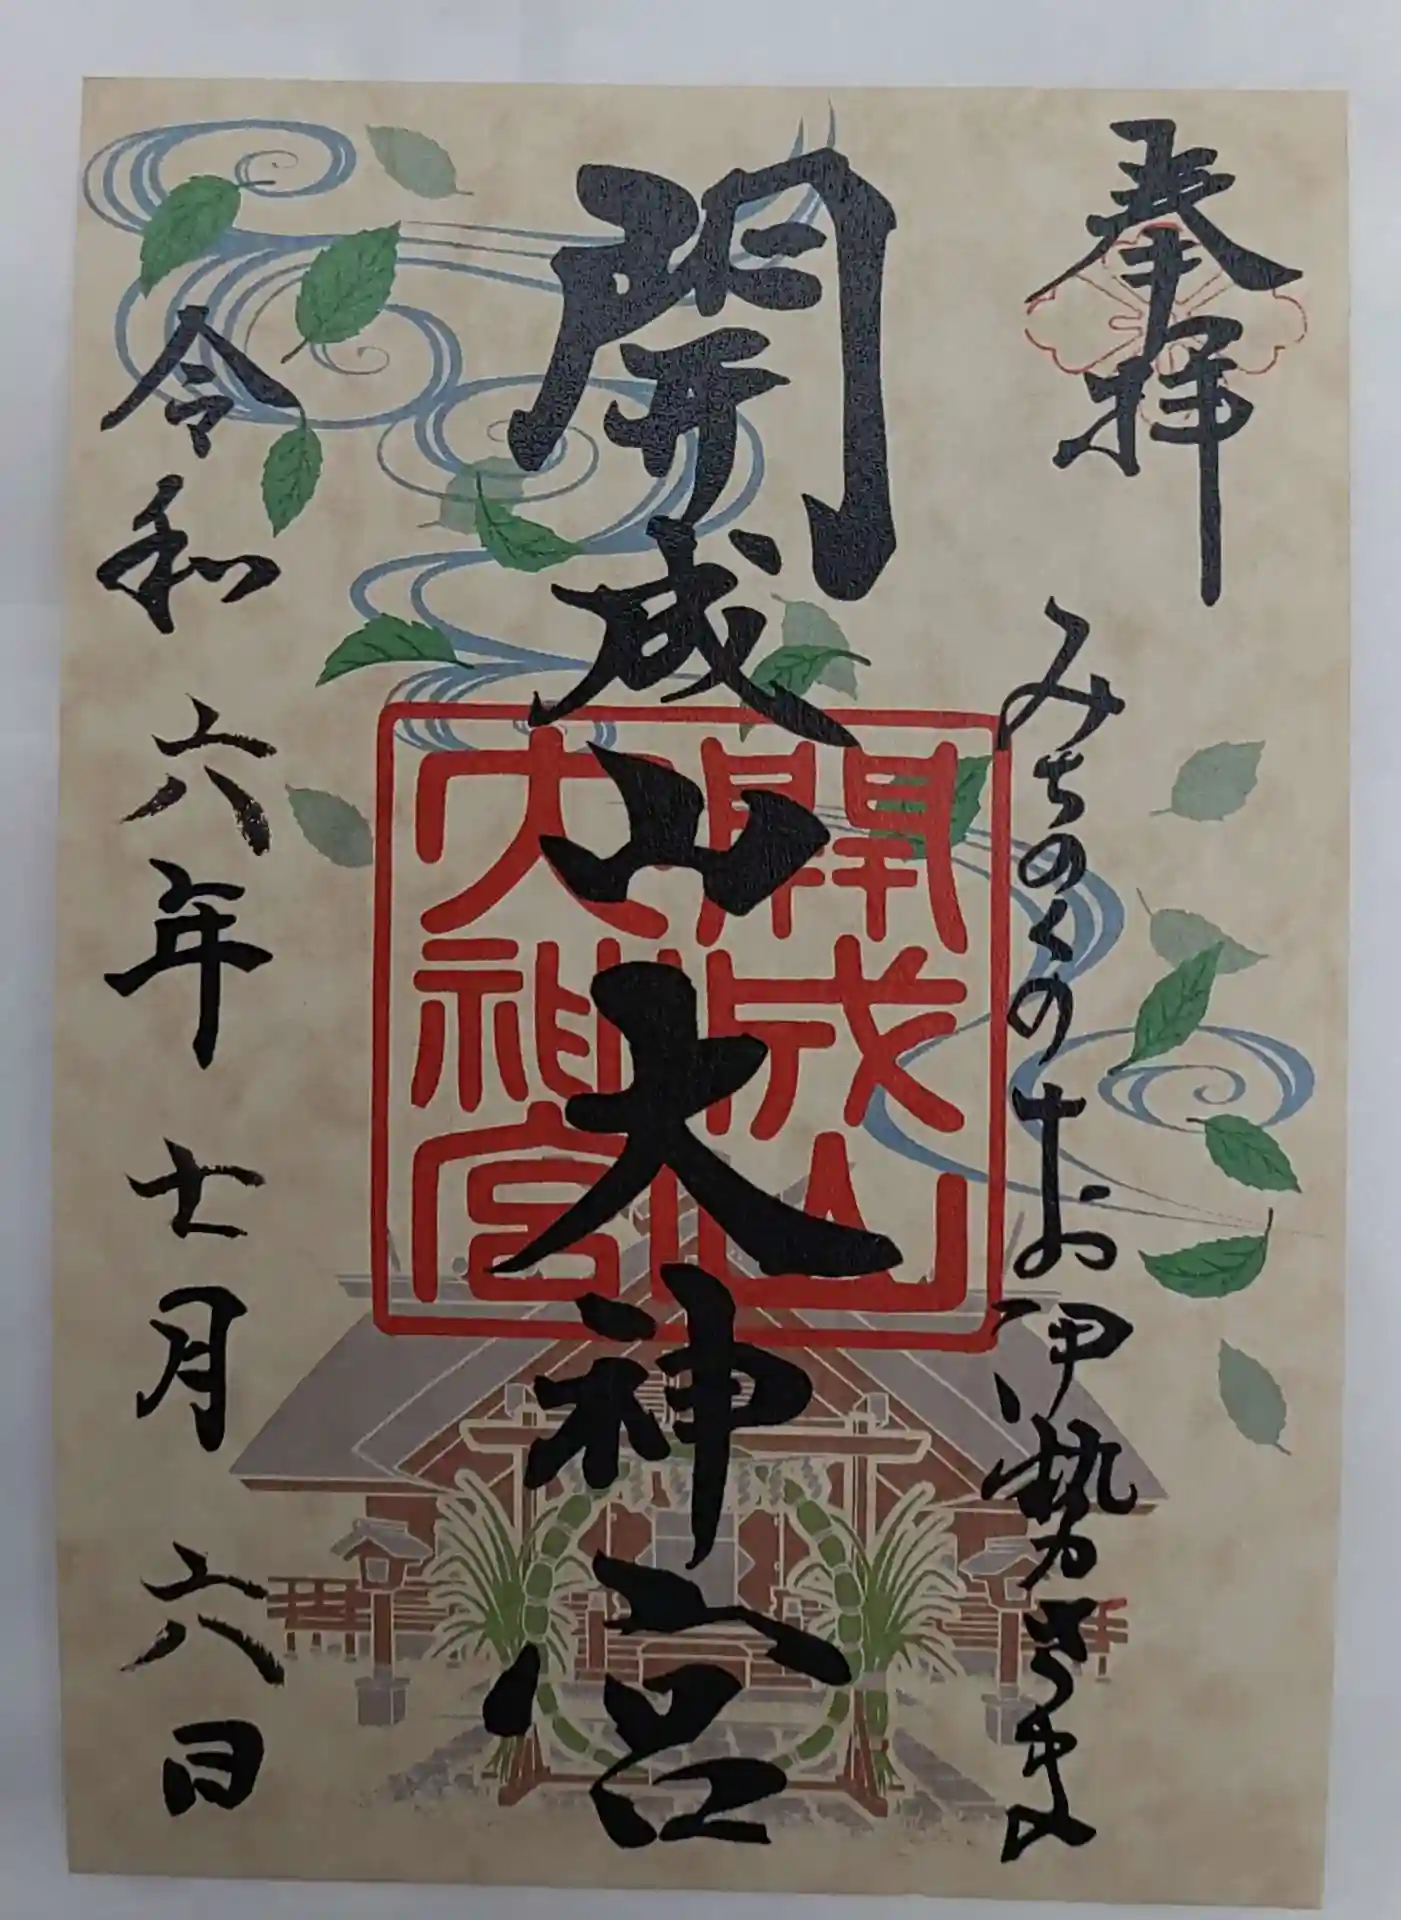 奉拝
みちのくのすお伊勢さま
開成山大神宮
開成山
大神宮
令和六年七月六日